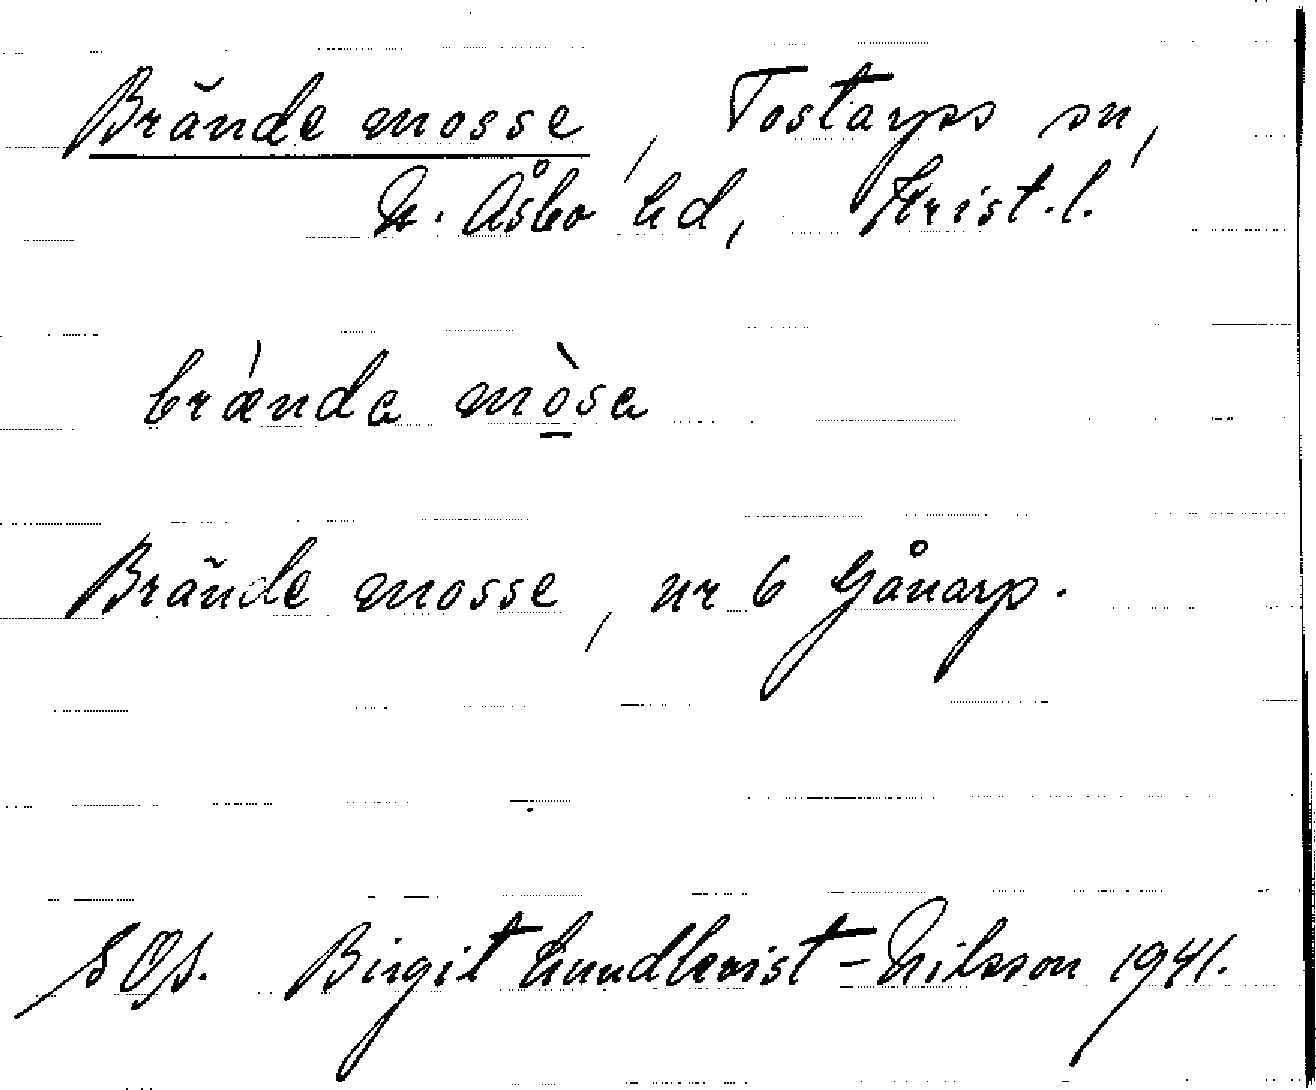 Brände mosse, Tostarps sn,
N. Åsbo hd, Krist. l.
brǽndɑ mòsɑ
Brände mosse, nr 6 Gånarp.
SOA. Birgit Lundkvist-Nilsson 1941.